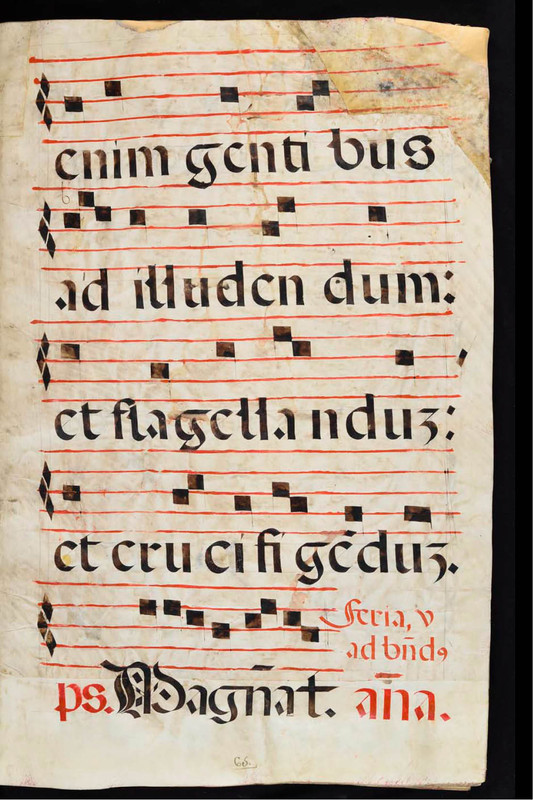 enim genti bus
ad illuden dum:
et flagella nduz:
et cru ci fi gēduz.
Feria, v
ad bn̄d9
ps. Magn̄at. an̄a.